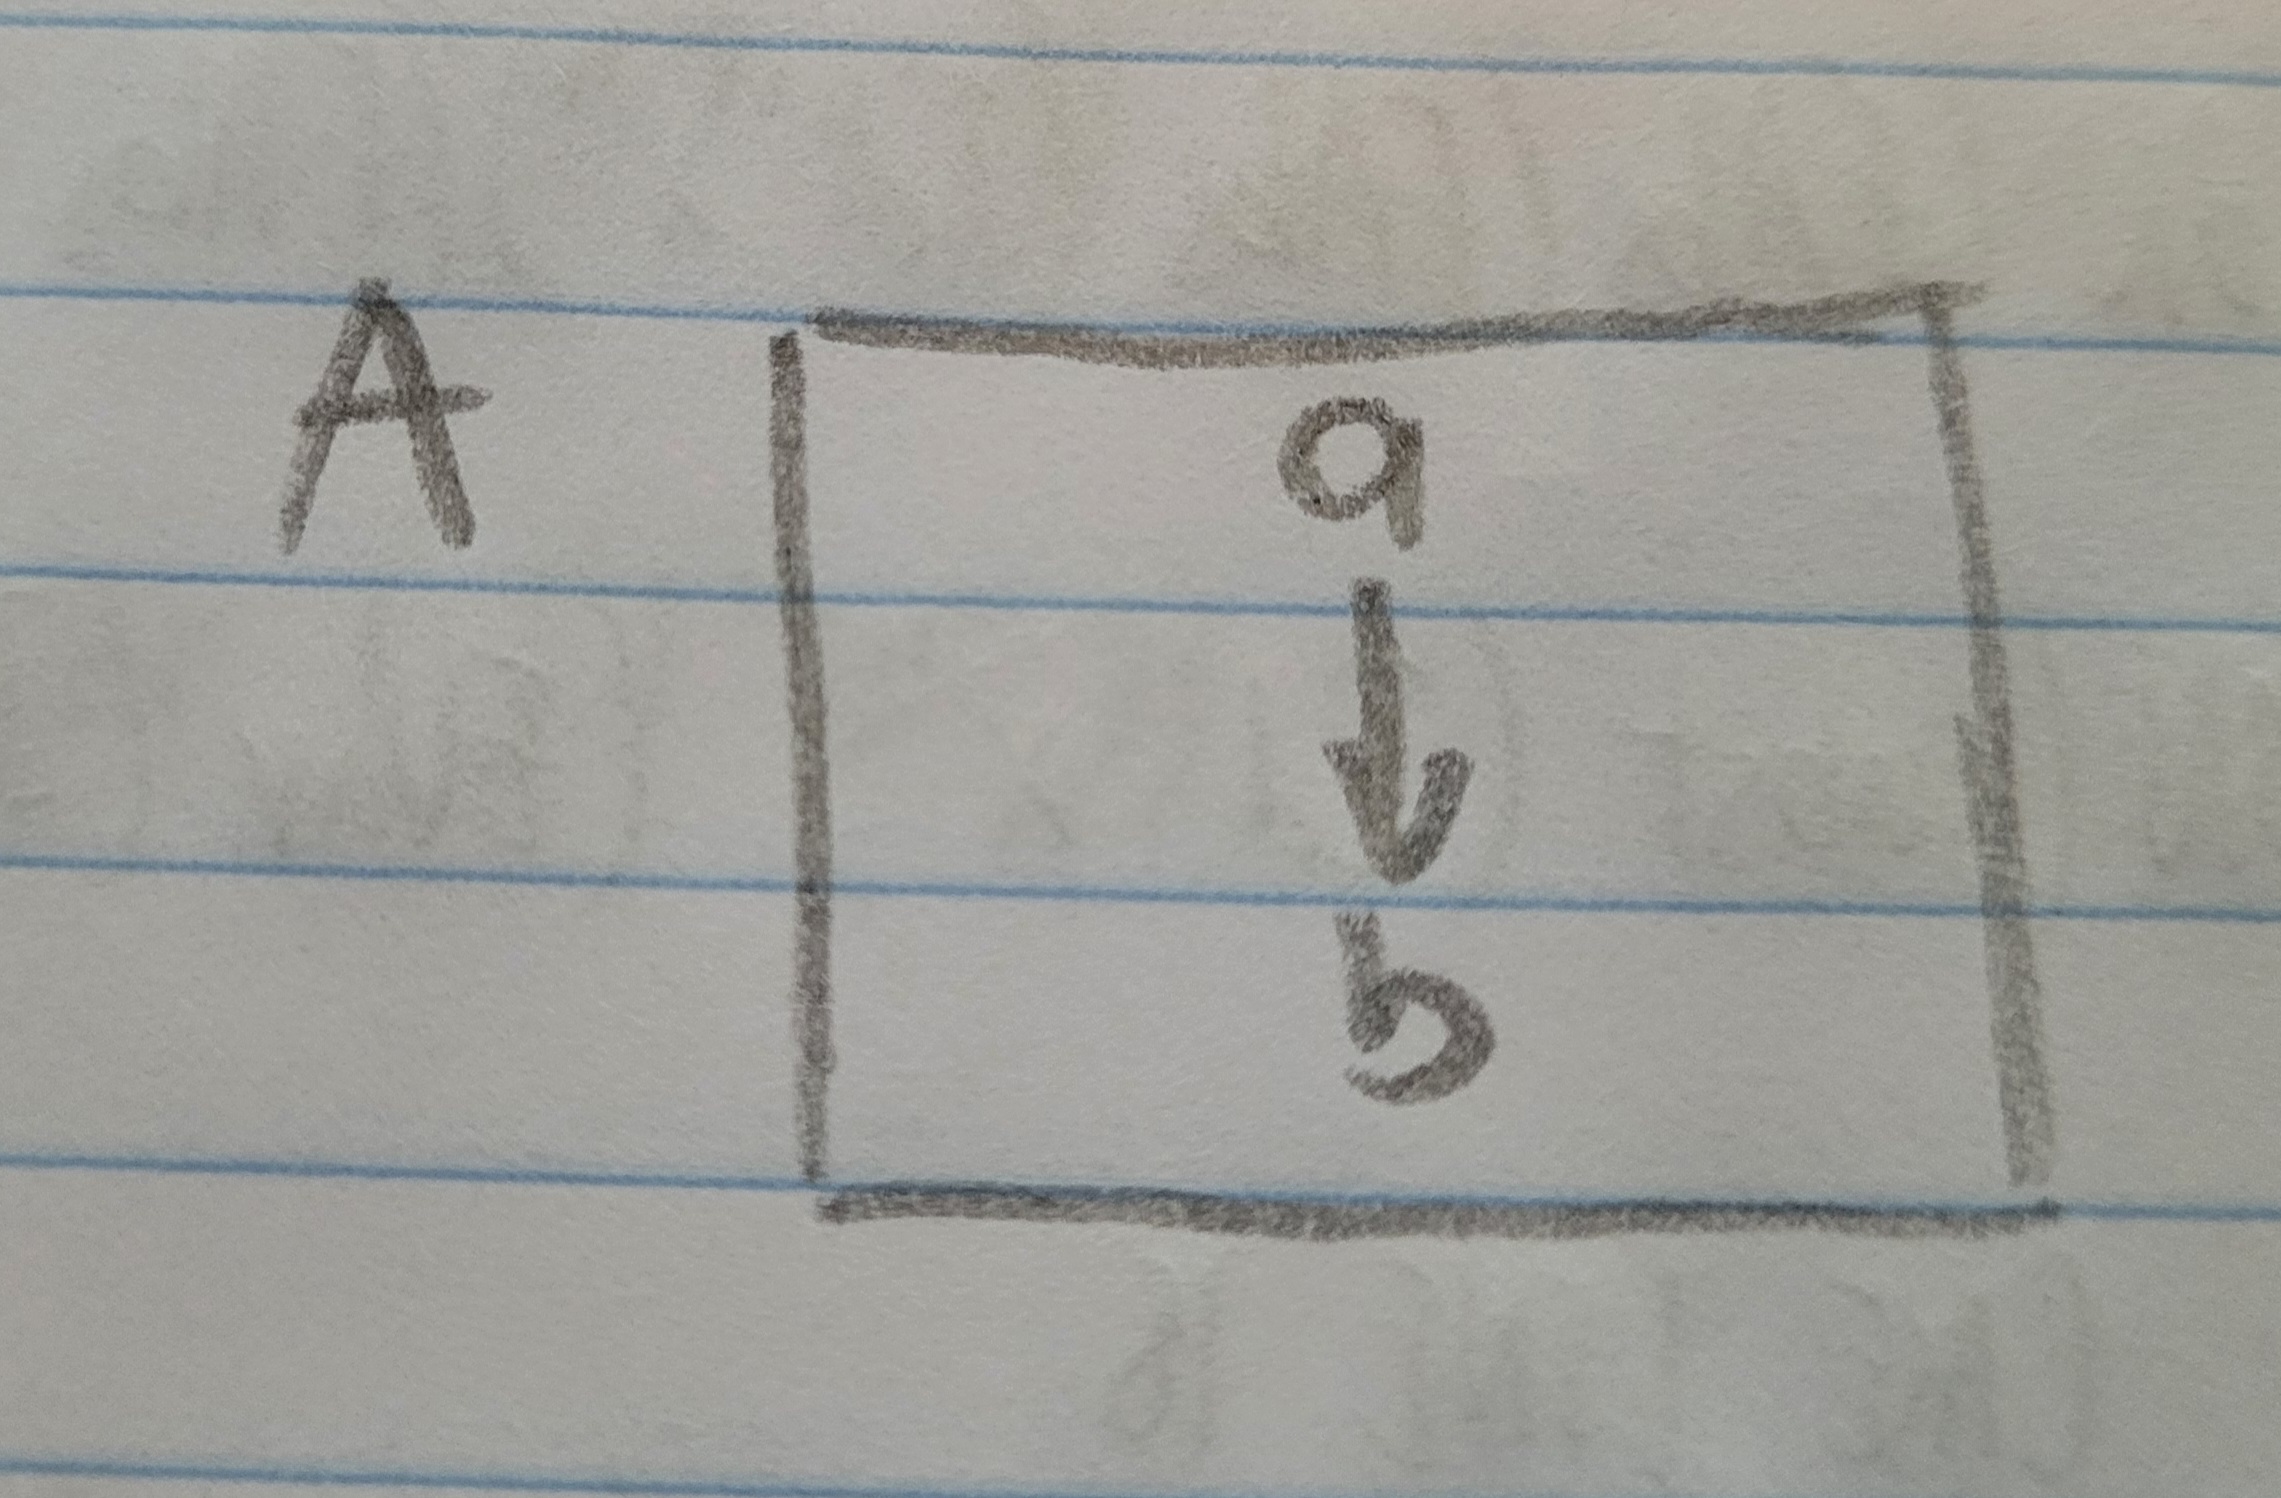 A
a
↓
b